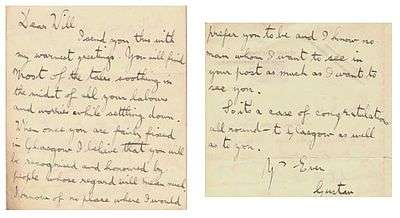 Dear Will
I send you this with
my warmest greetings. You will find
most of the                soothing in
the midst of all your labours
and worries while settling down.
When once you are fairly fixed
in Glasgow I believe that you will
be recognised and honoured by
people whose regard will mean much.
I know of no place where I would
prefer you to be and I know no
man whom I want to see in
your post as much as I want to
see you.
So its a case of congratulation
all round – to Glasgow as well
as to you.
Yrs Ever
Gustav